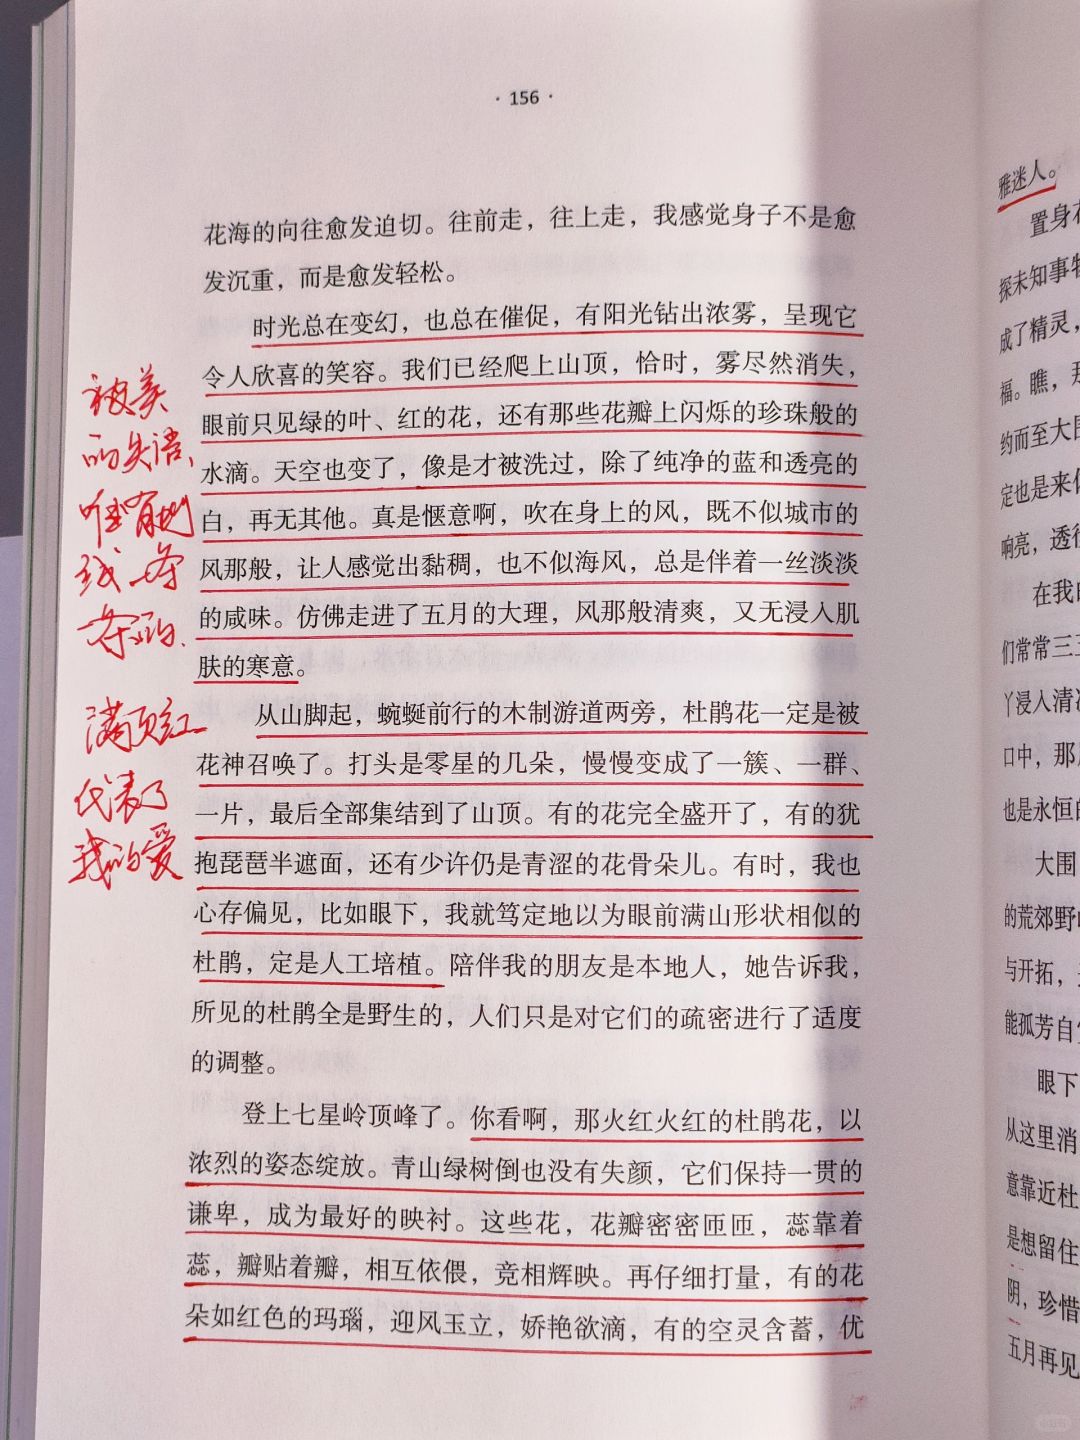 · 156 ·
花海的向往愈发迫切。往前走，往上走，我感觉身子不是愈
发沉重，而是愈发轻松。
时光总在变幻，也总在催促，有阳光钻出浓雾，呈现它
令人欣喜的笑容。我们已经爬上山顶，恰时，雾尽然消失，
眼前只见绿的叶、红的花，还有那些花瓣上闪烁的珍珠般的
水滴。天空也变了，像是才被洗过，除了纯净的蓝和透亮的
白，再无其他。真是惬意啊，吹在身上的风，既不似城市的
风那般，让人感觉出黏稠，也不似海风，总是伴着一丝淡淡
的咸味。仿佛走进了五月的大理，风那般清爽，又无浸入肌
肤的寒意。
从山脚起，蜿蜒前行的木制游道两旁，杜鹃花一定是被
花神召唤了。打头是零星的几朵，慢慢变成了一簇、一群、
一片，最后全部集结到了山顶。有的花完全盛开了，有的犹
抱琵琶半遮面，还有少许仍是青涩的花骨朵儿。有时，我也
心存偏见，比如眼下，我就笃定地以为眼前满山形状相似的
杜鹃，定是人工培植。陪伴我的朋友是本地人，她告诉我，
所见的杜鹃全是野生的，人们只是对它们的疏密进行了适度
的调整。
登上七星岭顶峰了。你看啊，那火红火红的杜鹃花，以
浓烈的姿态绽放。青山绿树倒也没有失颜，它们保持一贯的
谦卑，成为最好的映衬。这些花，花瓣密密匝匝，蕊靠着
蕊，瓣贴着瓣，相互依偎，竞相辉映。再仔细打量，有的花
朵如红色的玛瑙，迎风玉立，娇艳欲滴，有的空灵含蓄，优
被美
而失语、
唯有
线一条
条的、
满页红
代表了
我的爱
雅迷人。
置身
探未知事物
成了精灵，
福。瞧，
约而至大围
定也是来
响亮，透
在我的
们常常三三
丫浸入清
口中，那
也是永恒的
大围
的荒郊野
与开拓，
能孤芳自
眼下
从这里消
意靠近杜
是想留住
阴，珍惜
五月再见
小红书